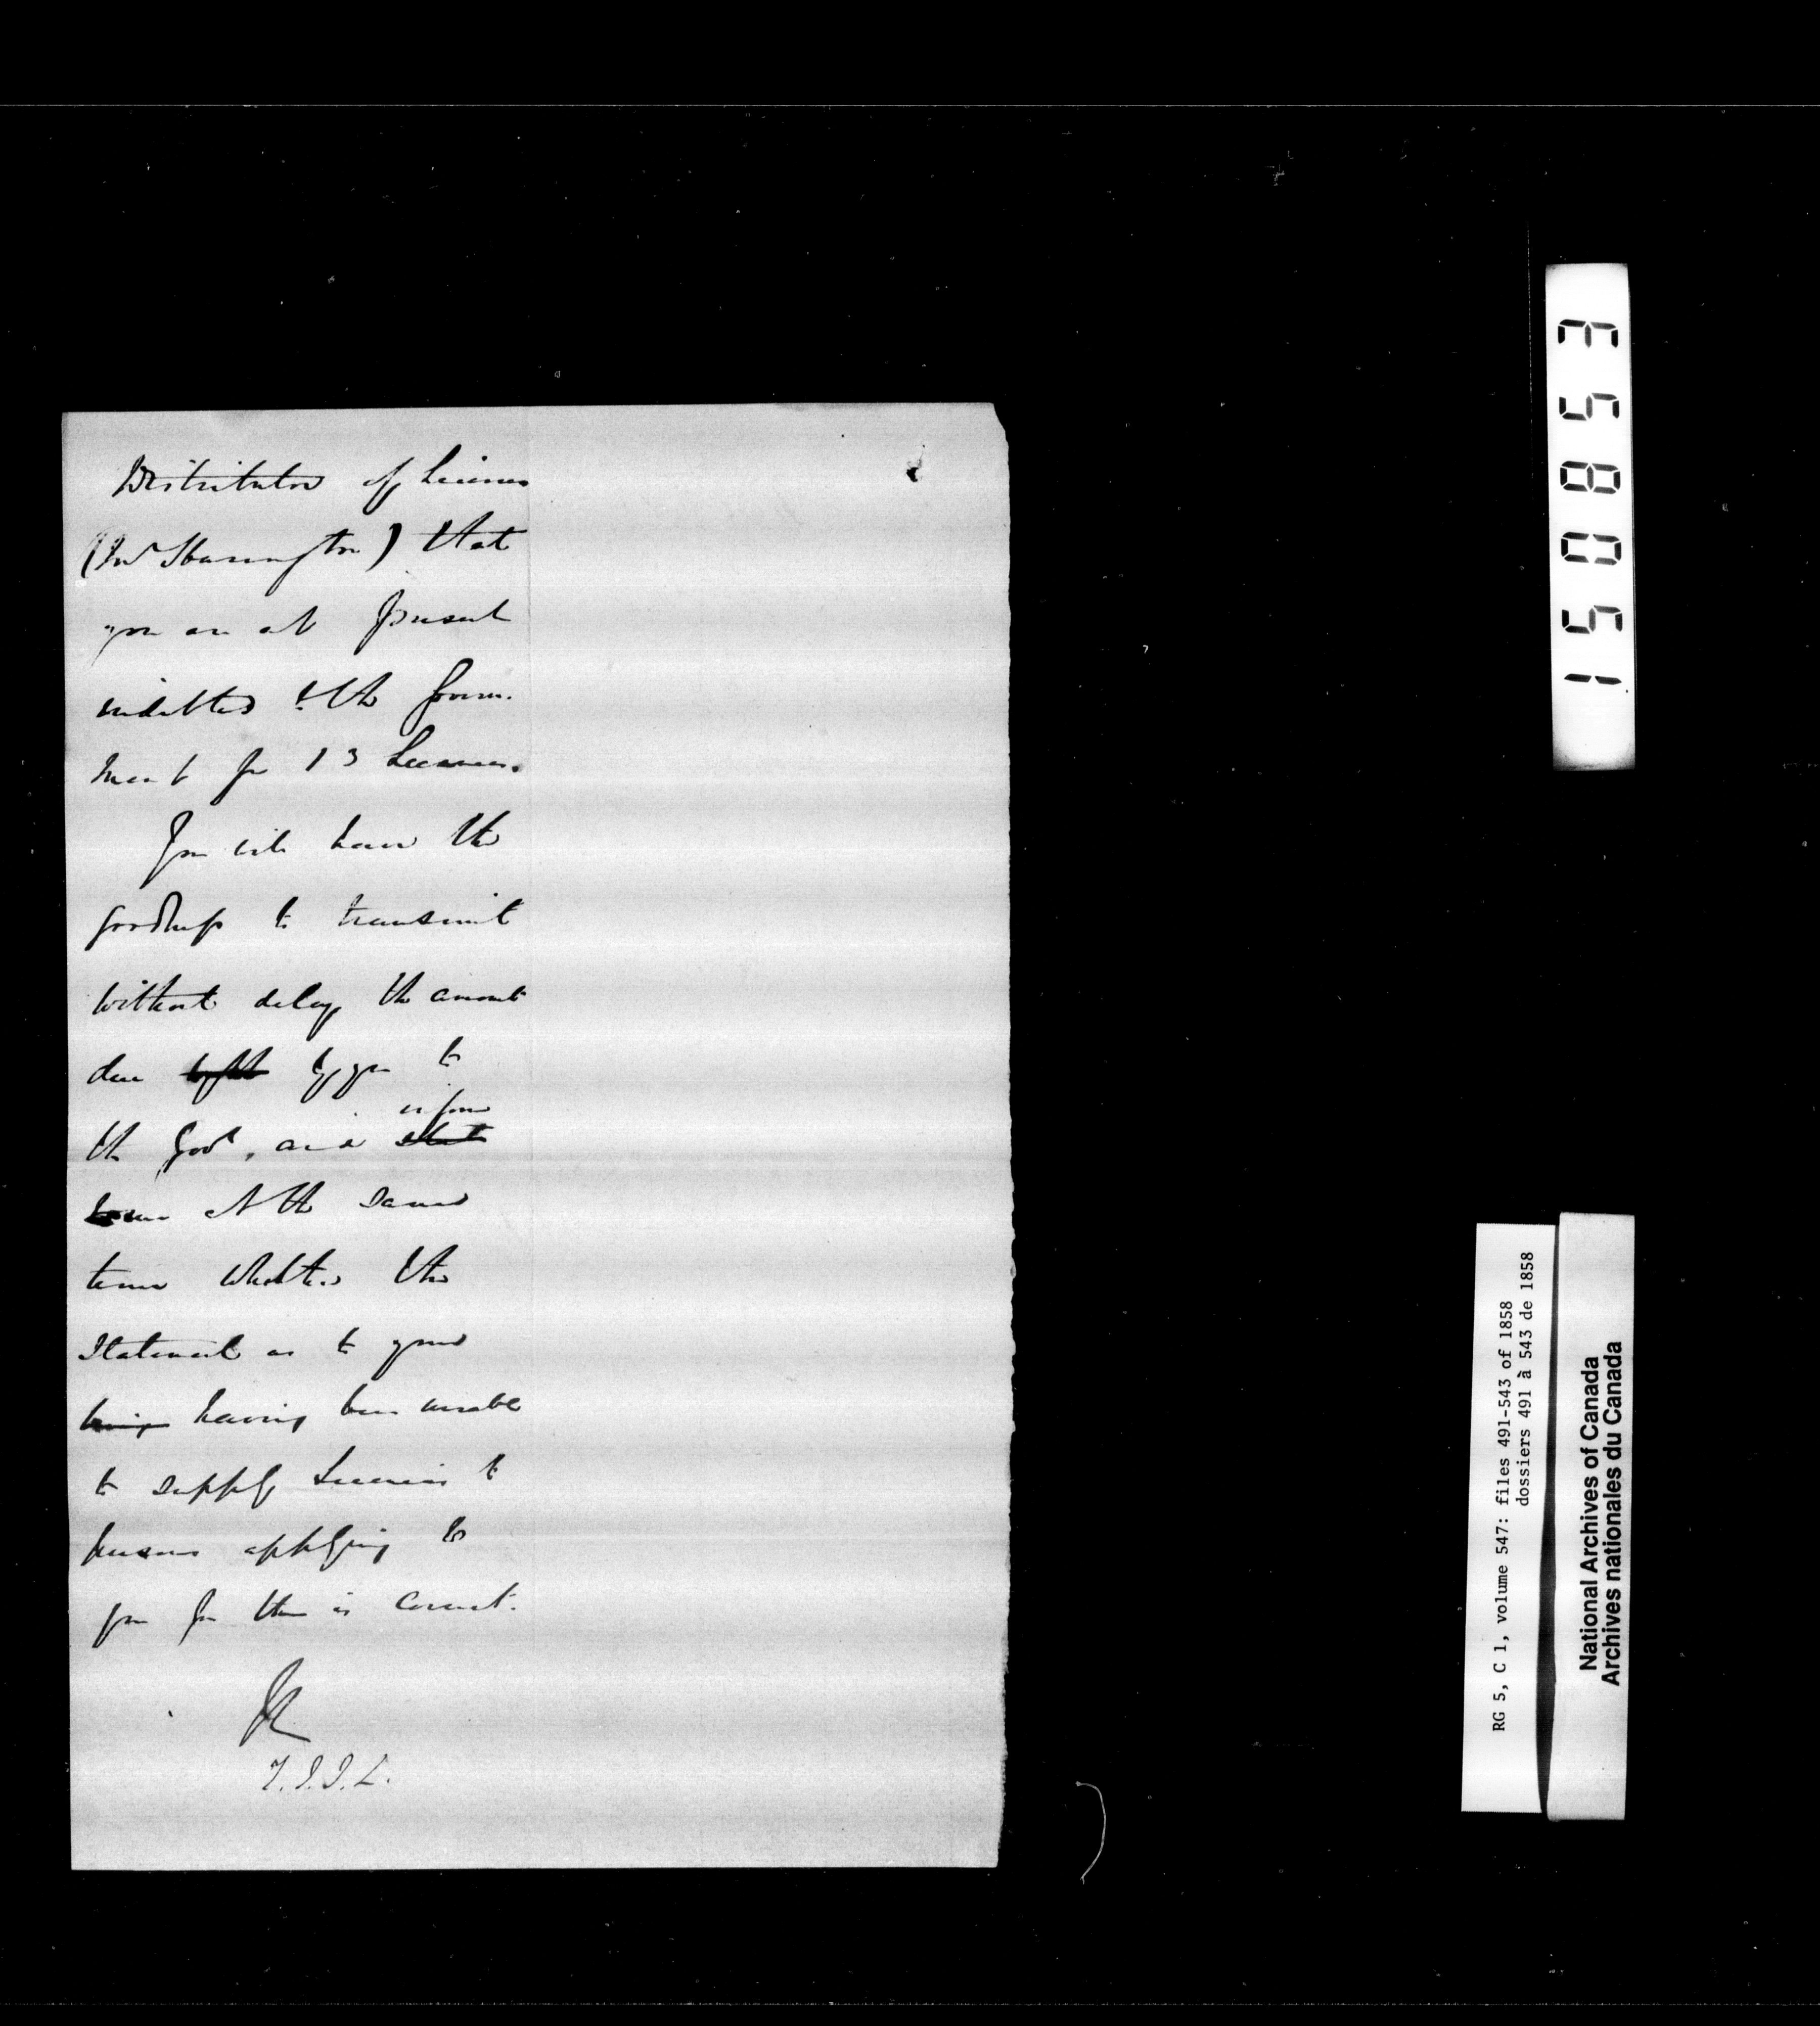 Distributor of Licenses
(Mr Harington) that
you are at present
indebted to the Govern-
ment for 13 Licenses.
You will have the
goodness to transmit
without delay the amount
due by you to
the Govt, and inform
state
me at the same
time whether the
Statement as to your
being having been unable
to supply Licenses to
persons applying to
you for them is correct.
T.J.J.L.
150853
RG 5, C 1, volume 547: files 491-543 of 1858
dossiers 491 à 543 de 1858
National Archives of Canada
Archives nationales du Canada